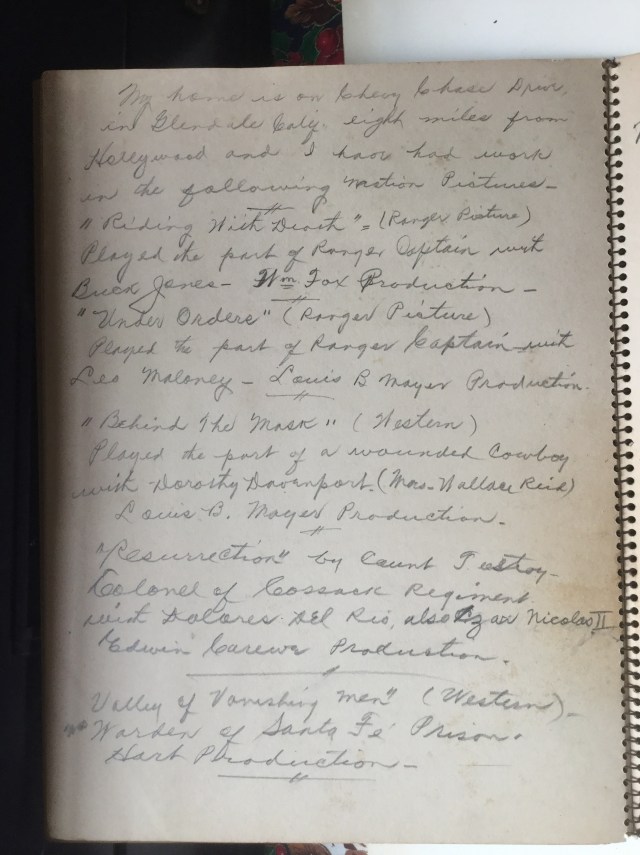 My home is on Chevy Chase Drive,
in Glendale Calif. eight miles from
Hollywood and I have had work
in the following Motion Pictures -
"Riding With Death" - (Ranger Picture)
Played the part of Ranger Captain with
Buck Jones - Wm Fox Production -
"Under Orders" (Ranger Picture)
Played the part of Ranger Captain with
Leo Maloney - Louis B Mayer Production.
"Behind The Mask" (Western)
Played the part of a wounded Cowboy
with Dorothy Davenport. (Mrs. Wallace Reid)
Louis B. Mayer Production.
"Resurrection" by Count Tolstoy -
Colonel of Cossack Regiment
with Dolores Del Rio, also Czar Nicolas II
Edwin Carewe Production.
Valley of Vanishing Men" (Western) -
Warden of Santa Fé Prison.
Hart Production -